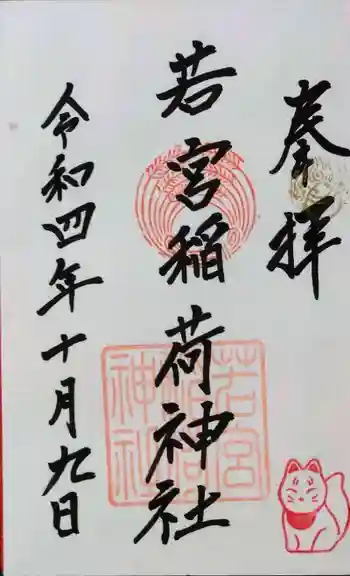 奉拝
若宮稲荷神社
令和四年十月九日
若宮
稲荷
神社